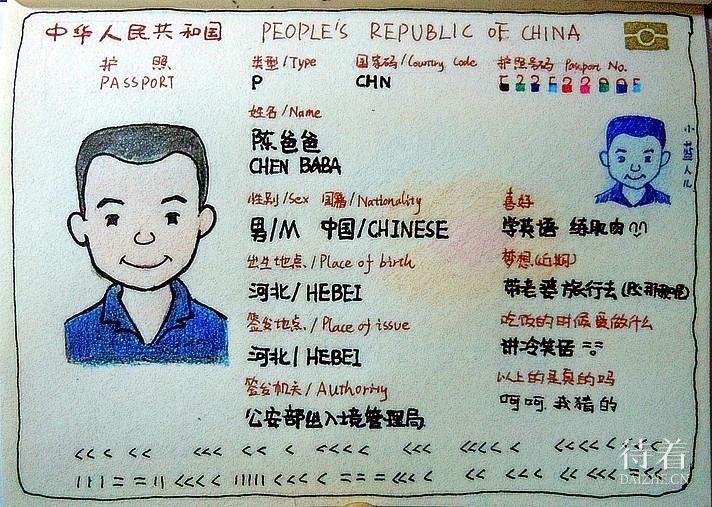 中华人民共和国 PEOPLE'S REPUBLIC OF CHINA
护照 类型/Type 国家码/Country Code 护照号码 Passport No.
PASSPORT P CHN
姓名/Name
陈爸爸
CHEN BABA
小蓝人儿
性别/Sex 国籍/Nationality 喜好
男/M 中国/CHINESE 学英语 练肌肉
出生地点/Place of birth 梦想(近期)
河北/HEBEI 带老婆旅行去
签发地点/Place of issue 吃饭的时候要做什么
河北/HEBEI 讲冷笑话
签发机关/Authority 以上的是真的吗
公安部出入境管理局 呵呵.我猜的
<<< << <<< << <<< << <<<< <<<<<<<
待着
DAIZHE.CN